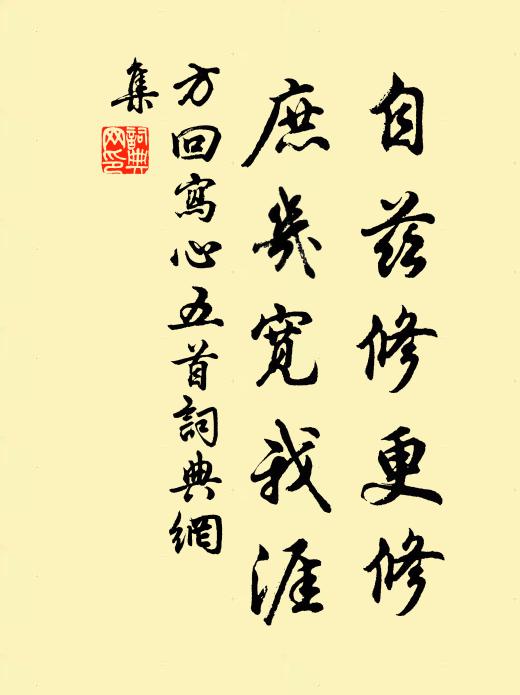 自茲修更修
庶幾寬我涯
方回寫心五首詞典網
集
詞典
网印